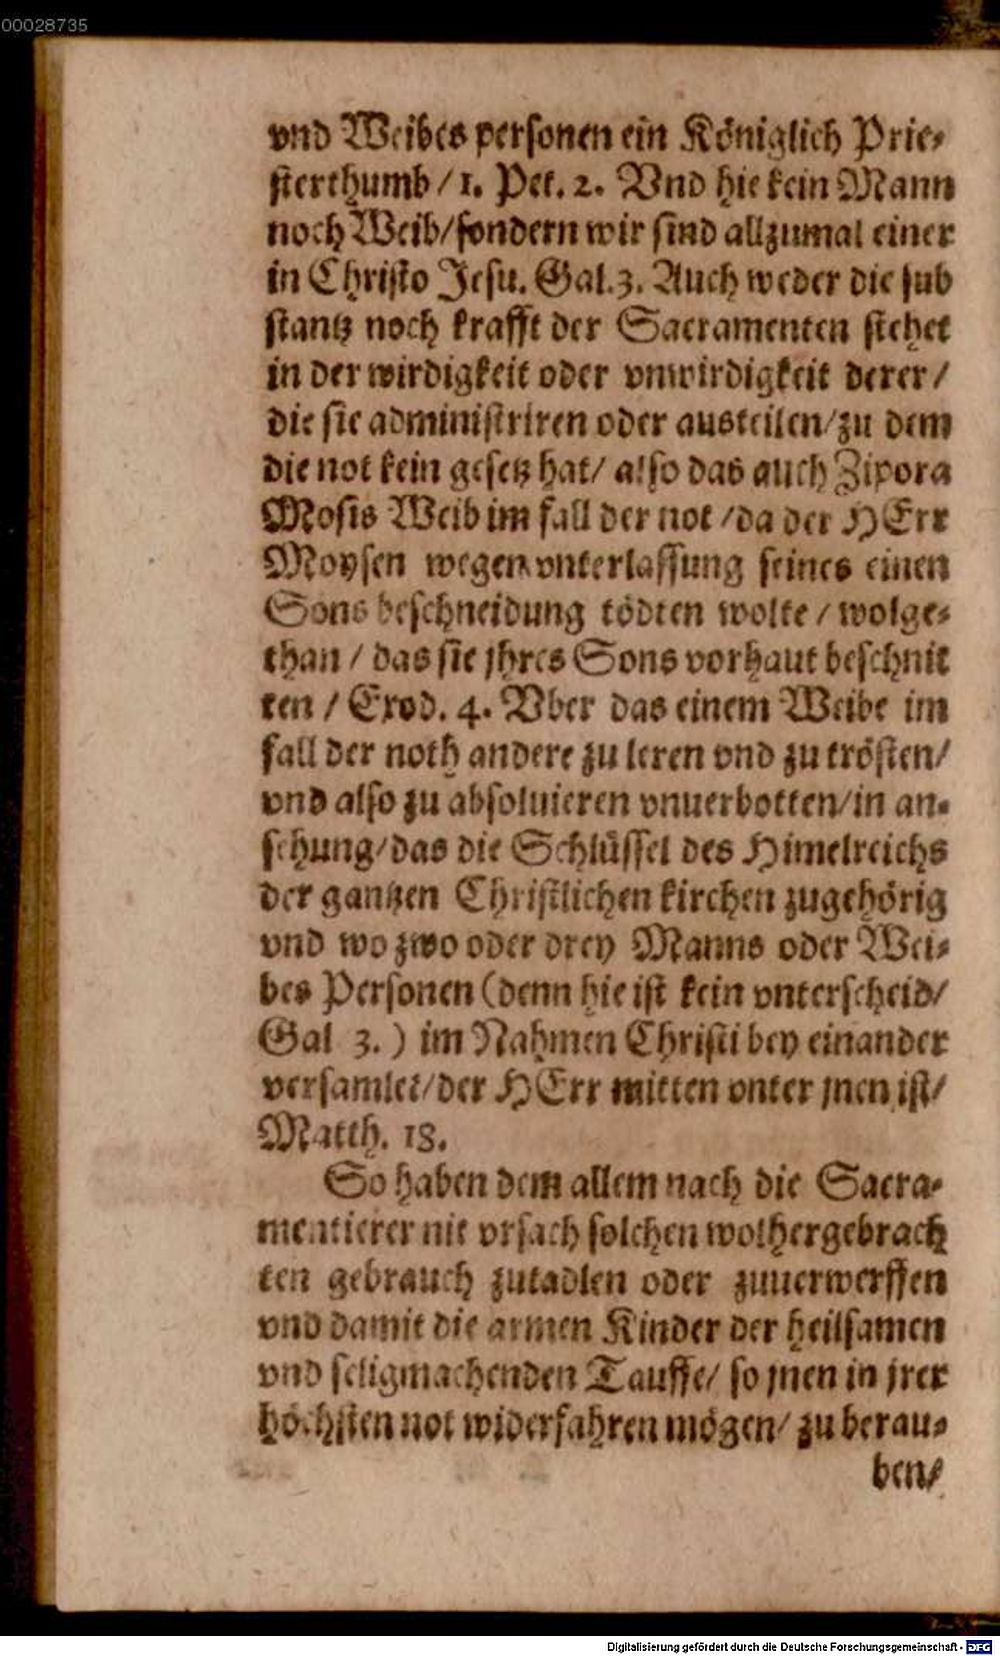 00028735
vnd Weibes personen ein Königlich Prie-
sterthumb / 1. Pet. 2. Vnd hie kein Mann
noch Weib / sondern wir sind allzumal einer
in Christo Jesu. Gal. 3. Auch weder die sub
stantz noch krafft der Sacramenten stehet
in der wirdigkeit oder vnwirdigkeit derer /
die sie administriren oder austeilen / zu dem
die not kein gesetz hat / also das auch Zipora
Mosis Weib im fall der not / da der HErr
Moysen wegen vnterlassung seines einen
Sons beschneidung tödten wolte / wolge-
than / das sie jhres Sons vorhaut beschnit
ten / Exod. 4. Vber das einem Weibe im
fall der noth andere zu leren vnd zu trösten /
vnd also zu absoluieren vnuerbotten / in an-
sehung / das die Schlüssel des Himelreichs
der gantzen Christlichen kirchen zugehörig
vnd wo zwo oder drey Manns oder Wei-
bes Personen (denn hie ist kein vnterscheid /
Gal 3. ) im Nahmen Christi bey einander
versamlet / der HErr mitten vnter jnen ist /
Matth. 18.
So haben dem allem nach die Sacra-
mentierer nit vrsach solchen wolhergebrach
ten gebrauch zutadlen oder zuuerwerffen
vnd damit die armen Kinder der heilsamen
vnd seligmachenden Tauffe / so jnen in jrer
höchsten not widerfahren mögen / zu berau-
ben /
Digitalisierung gefördert durch die Deutsche Forschungsgemeinschaft - DFG